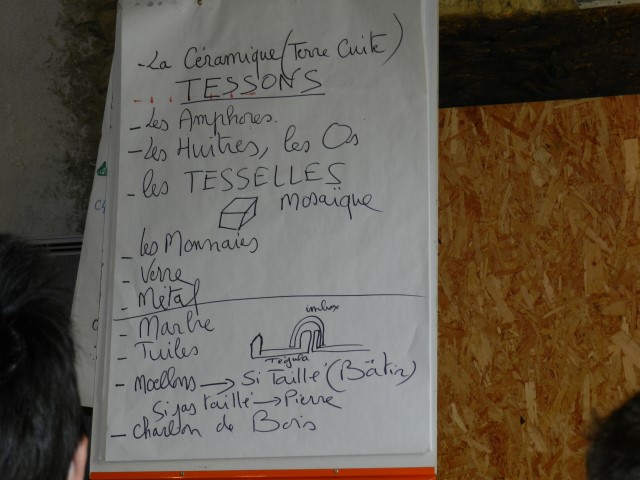 - La Céramique (Terre Cuite)
TESSONS
- Les Amphores.
- Les Huîtres, les Os
- les TESSELLES
mosaïque
- les Monnaies
- Verre
- Métal
- Marbre
imbrex
- Tuiles
Tegula
- Moellons → Si Taillé (Bâtir)
Si pas taillé → Pierre
- Charbon de Bois